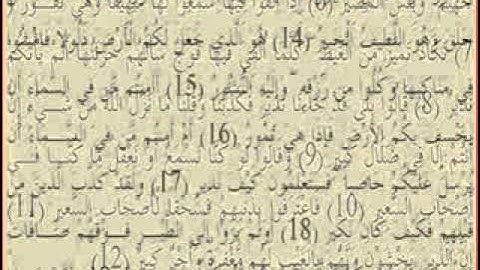 جهنم وبئس المصير (6) إذا ألقوا فيها سمعوا لها شهيقا وهي تفور
خلق وهو اللطيف الخبير (14) هو الذي جعل لكم الأرض ذلولا فامشوا
(7) تكاد تميز من الغيظ كلما ألقي فيها فوج سألهم خزنتها ألم يأتكم
في مناكبها وكلوا من رزقه وإليه النشور (15) أأمنتم من في السماء أن
نذير (8) قالوا بلى قد جاءنا نذير فكذبنا وقلنا ما نزل الله من شيء إن
يخسف بكم الأرض فإذا هي تمور (16) أم أمنتم من في السماء أن
أنتم إلا في ضلال كبير (9) وقالوا لو كنا نسمع أو نعقل ما كنا في
يرسل عليكم حاصبا فستعلمون كيف نذير (17) ولقد كذب الذين من
أصحاب السعير (10) فاعترفوا بذنبهم فسحقا لأصحاب السعير (11)
قبلهم فكيف كان نكير (18) أولم يروا إلى الطير فوقهم صافات
إن الذين يخشون ربهم بالغيب لهم مغفرة وأجر كبير (12)